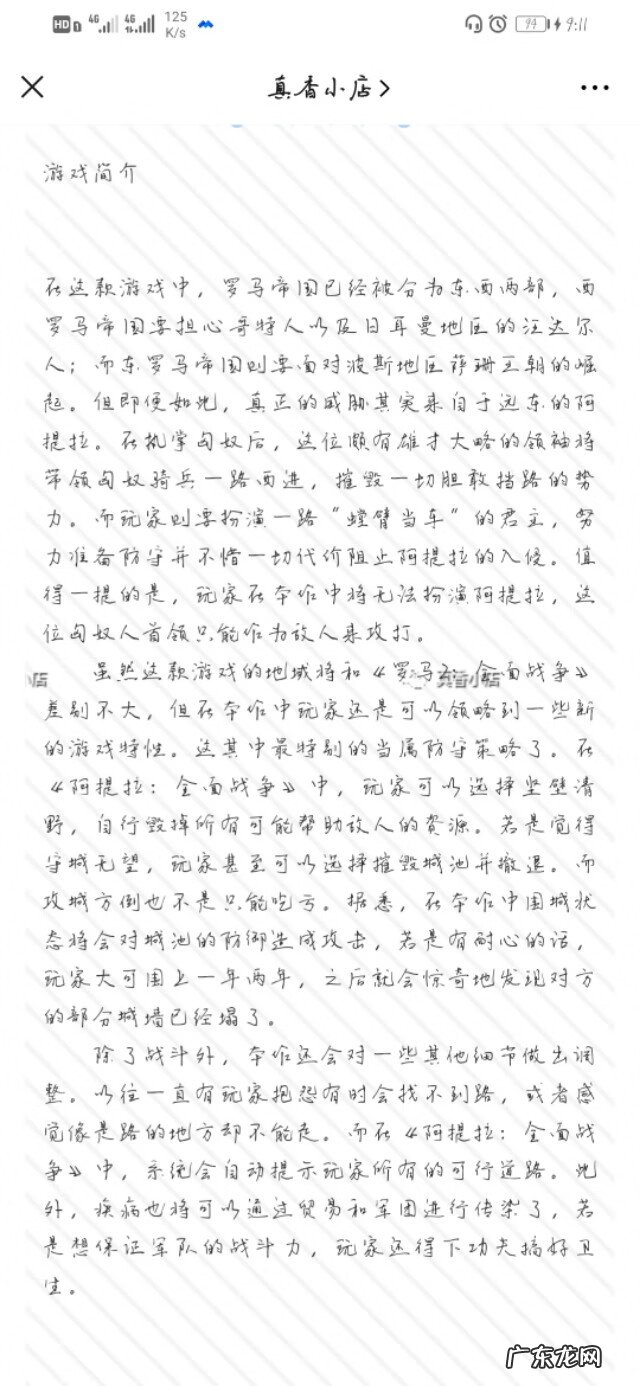 HD 1 4G 4G 125 K/s 94 9:11
真香小店
游戏简介
在这款游戏中，罗马帝国已经被分为东西两部，西
罗马帝国要担心哥特人以及日耳曼地区的汪达尔
人；而东罗马帝国则要面对波斯地区萨珊王朝的崛
起。但即便如此，真正的威胁其实来自于远东的阿
提拉。在执掌匈奴后，这位颇有雄才大略的领袖将
带领匈奴骑兵一路西进，摧毁一切胆敢挡路的势
力。而玩家则要扮演一路“螳臂当车”的君主，努
力准备防守并不惜一切代价阻止阿提拉的入侵。值
得一提的是，玩家在本作中将无法扮演阿提拉，这
位匈奴人首领只能作为敌人来攻打。
虽然这款游戏的地域将和《罗马2：全面战争》
差别不大，但在本作中玩家还是可以领略到一些新
的游戏特性。这其中最特别的当属防守策略了。在
《阿提拉：全面战争》中，玩家可以选择坚壁清
野，自行毁掉所有可能帮助敌人的资源。若是觉得
守城无望，玩家甚至可以选择摧毁城池并撤退。而
攻城方倒也不是只能吃亏。据悉，在本作中围城状
态将会对城池的防御造成攻击，若是有耐心的话，
玩家大可围上一年两年，之后就会惊奇地发现对方
的部分城墙已经塌了。
除了战斗外，本作还会对一些其他细节做出调
整。以往一直有玩家抱怨有时会找不到路，或者感
觉像是路的地方却不能走。而在《阿提拉：全面战
争》中，系统会自动提示玩家所有的可行道路。此
外，疾病也将可以通过贸易和军团进行传染了，若
是想保证军队的战斗力，玩家还得下功夫搞好卫
生。
小店
真香小店
广东龙网